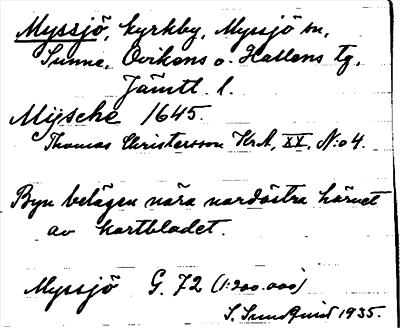 Myssjö, kyrkby, Myssjö sn,
Sunne, Ovikens o. Hallens tg,
Jämtl. l.
Mijsche 1645.
Thomas Christersson KrA, XX, N:o 4.
Byn belägen nära nordöstra hörnet
av kartbladet.
Myssjö G. 72 (1:200.000)
S. Sundquist 1935.